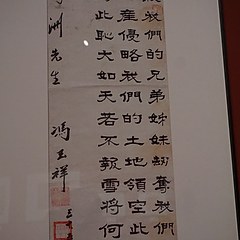 殺我們的兄弟姊妹劫奪我們
產侵略我們的土地領空此
此恥大如天若不報雪將何
洲先生
馮玉祥